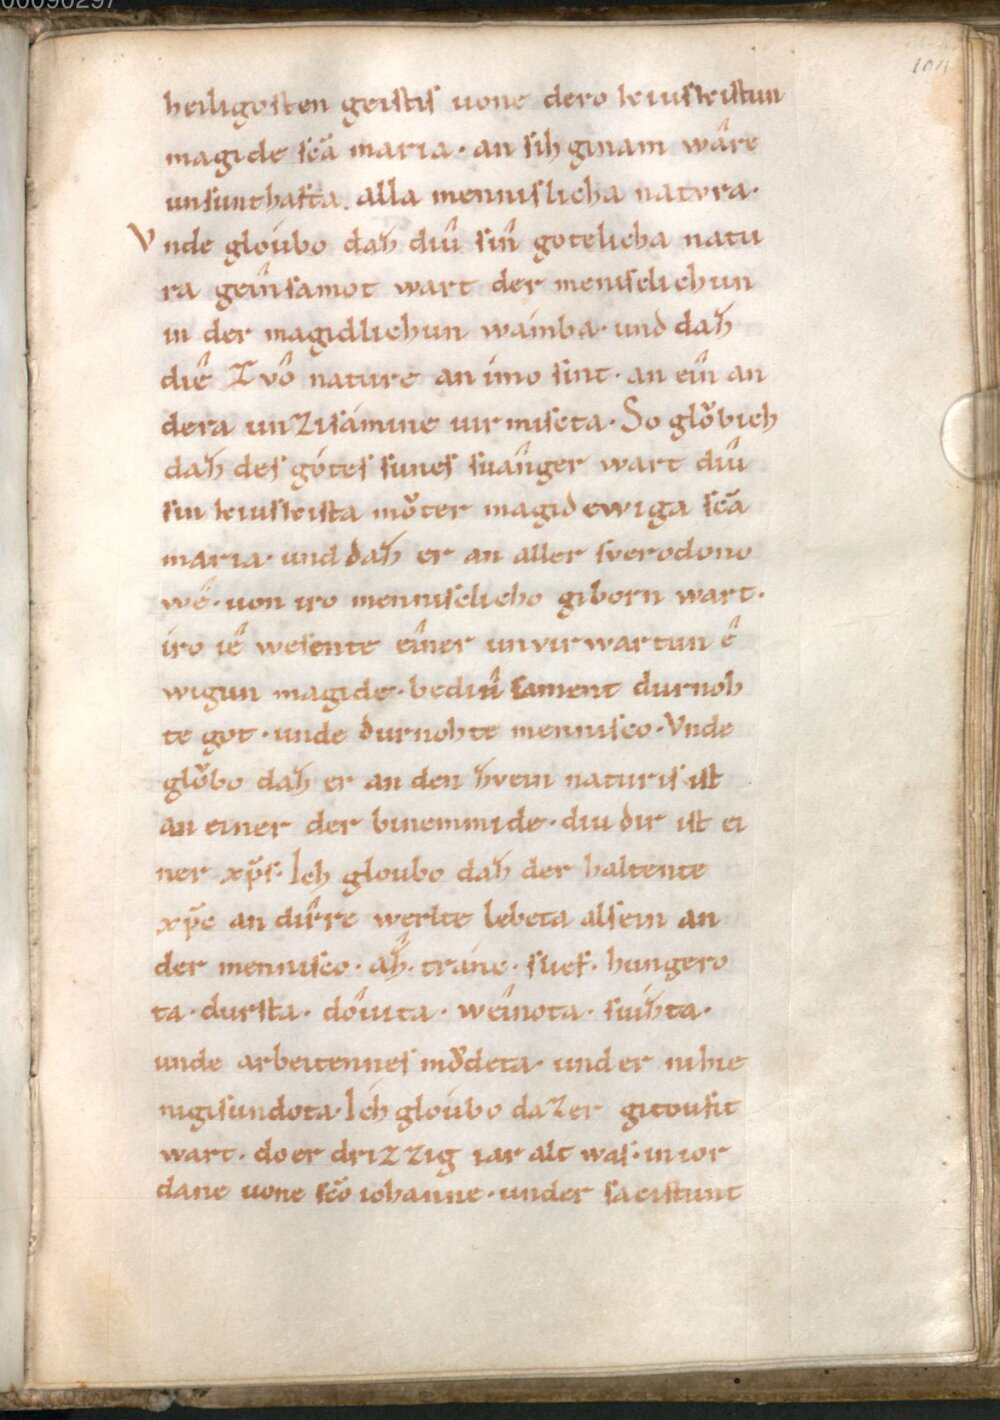 00090297
104
heiligosten geistis uone dero kiuskistun
magide sc̄a maria· an sih ginam wâre
unsunthafta. alla mennislicha natvra·
Vnde gloúbo daʒ diû sîn gotelicha natu
ra geînsamot wart der mennisclichun
in der magidlichun wamba· und daʒ
diê Zvô nature an imo sint· an eîn an
dera unZisámine uirmisceta· So glǒbich
daʒ des gótes sunes suânger wart diû
sin kiuskista mǒter magid ewiga sc̄a
maria· und daʒ er an aller sverodono
wê· uon iro menniselicho giborn wart·
íro iê wesente eîner unvirwartun ê
wigun magide· bediû sament durnoh
te got· unde durnohte mennisco· Vnde
glǒbo daʒ er an den ʒvein naturis ist
an einer der binemmide· diu dir ist ei
ner xp̄s· Ich gloubo daʒ der haltente
xp̄c an dirre werlte lebeta alsein an
der mennisco· âʒ· tránc· slief· hungero
ta· dursta· dôiuta· weînota· suiʒta·
unde arbeitennes mǒdeta· under nihie
nigisundota· Ich gloúbo daZer gitoufit
wart· doer driZZig iar alt was· in ior
dane uone sc̄o iohanne· under sa eistunt